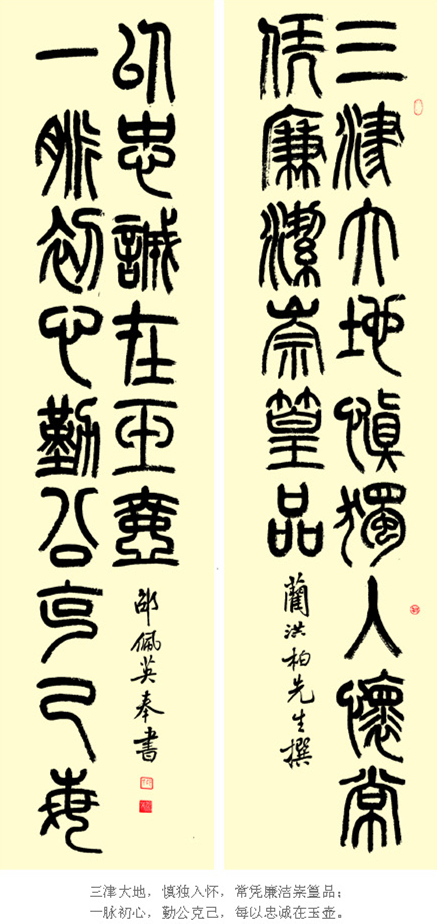 三津大地慎獨入懷常
凭廉潔崇篁品
藺洪柏先生撰
一脈初心勤公克己每
以忠誠在玉壺
邵佩英奉書
三津大地，慎独入怀，常凭廉洁崇篁品；
一脉初心，勤公克己，每以忠诚在玉壶。